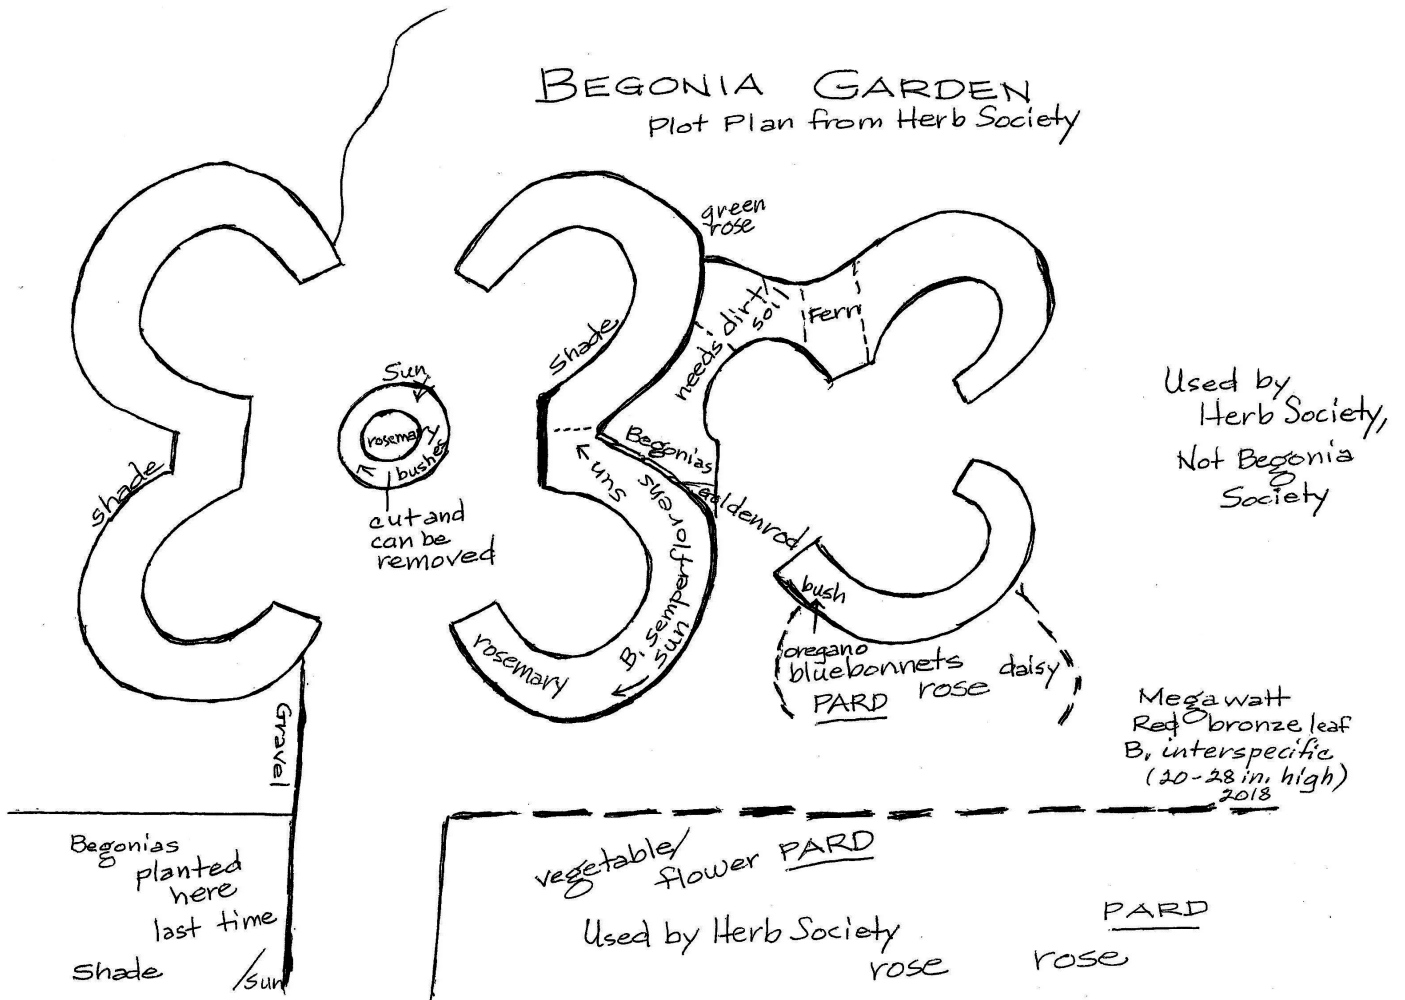 BEGONIA GARDEN
Plot Plan from Herb Society
green
rose
needs dirt/
soil
Fern
Shade
Sun
rosemary
bushes
cut and
can be
removed
shade
Begonias
Goldenrod
sun
B. semperflorens
sun
rosemary
bush
oregano
bluebonnets
daisy
PARD
rose
Used by
Herb Society,
Not Begonia
Society
Megawatt
Red bronze leaf
B. interspecific
(20-28 in. high)
2018
Gravel
Begonias
planted
here
last time
Shade
/Sun
vegetable/
flower PARD
Used by Herb Society
rose
rose
PARD